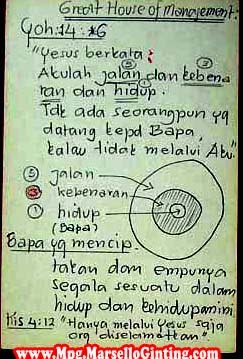 Great House of Management:
Yoh:14:*6
"Yesus berkata:
③ ②
Akulah jalan dan kebena
ran dan hidup.
①
Tdk ada seorangpun yg
datang kepd Bapa,
kalau tidak melalui Aku."
③ jalan
② kebenaran
① hidup
(Bapa)
Bapa yg mencip-
takan dan empunya
segala sesuatu dalam
hidup dan kehidupan ini
Kis 4:12 "Hanya melalui Yesus saja
org diselamatkan"
www.Mpg.MarselloGinting.com